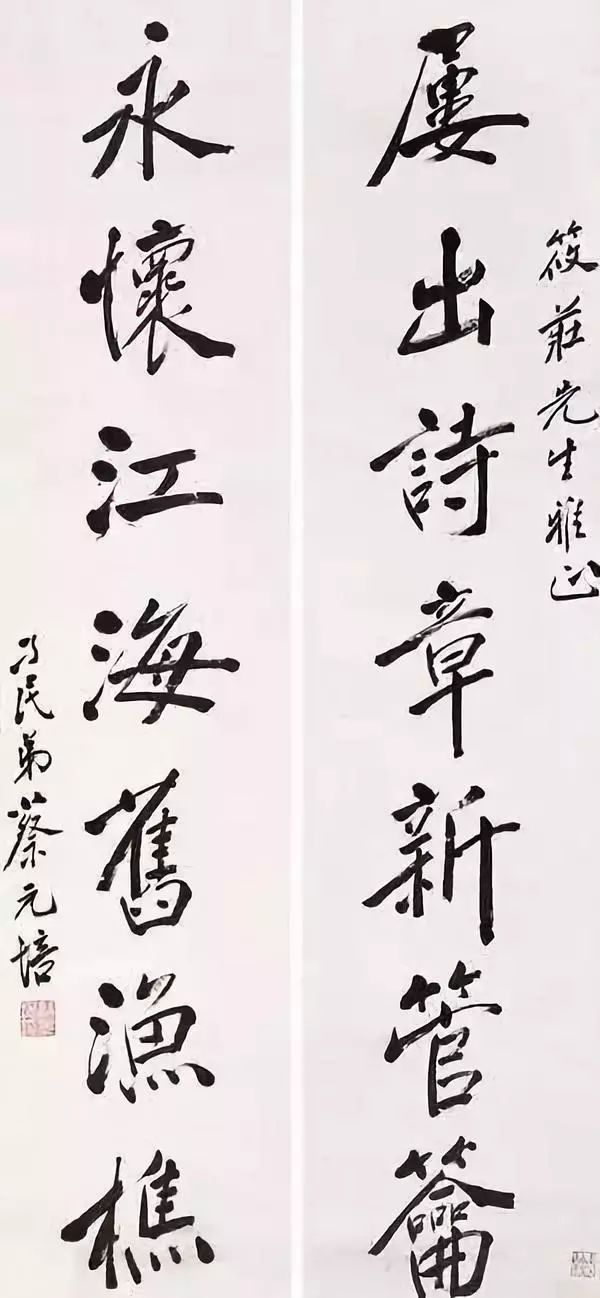 筱莊先生雅正
屢出詩章新管籥
永懷江海舊漁樵
孑民弟蔡元培